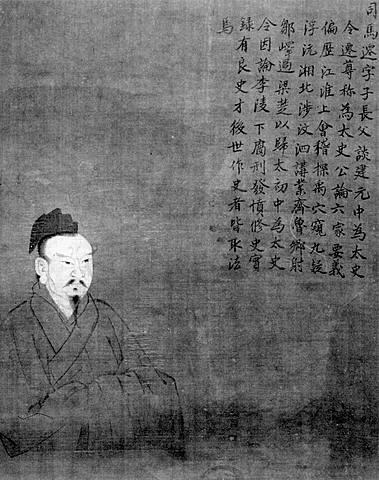 司馬遷字子長父談建元中為太史
令遷尊称為太史公論六家要義
偏歷江淮上會稽探禹穴窺九疑
浮沅湘北渉汶泗講業齊魯鄉射
鄒嶧過梁楚以歸太初中為太史
令因論李陵下腐刑發憤修史實
録有良史才後世作史者皆取法
焉